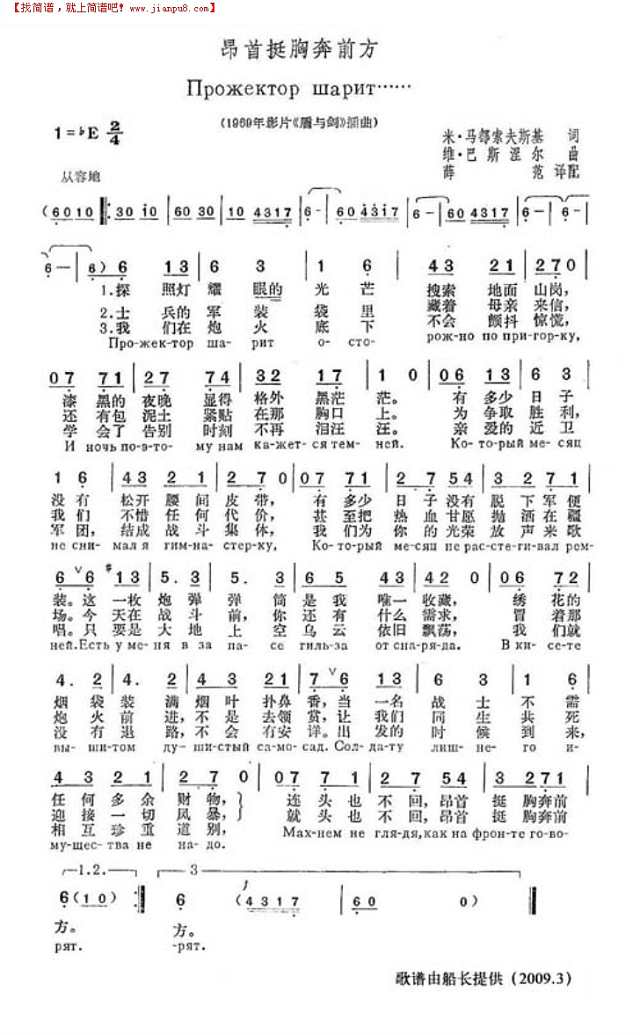 【找简谱，就上简谱吧! www.jianpu8.com】
昂首挺胸奔前方
Прожектор шарит……
(1969年影片《盾与剑》插曲)
1=♭E 2/4
米·马都索夫斯基 词
维·巴斯涅尔 曲
薛 范 译配
从容地
(6010 :30 i0 | 60 30 | 10 4317 | 6 - | 60 4317 | 6 - | 60 4317 | 6 - |
6 - | 6) 6 13 | 6 3 | 1 6 | 43 21 | 270 |
1.探 照灯 耀 眼的 光 芒 搜索 地面 山岗，
2.士 兵的 军 装 袋 里 藏着 母亲 来信，
3.我 们在 炮 火 底 下 不会 颤抖 惊慌，
Про-жек-тор ша-рит о-сто-рож-но по при-гор-ку,
07 71 | 27 74 | 32 17 | 10 | 06 13 |
漆 黑的 夜晚 显得 格外 黑茫 茫。 有 多少 日子
还 有包 泥土 紧贴 在那 胸口 上。 为 争取 胜利，
学 会了 告别 时刻 不再 泪汪 汪。 亲 爱的 近卫
И ночь по-э-то-му нам ка-жет-ся тем-ней. Ко-то-рый ме-сяц
1 6 | 43 21 | 2 70 | 07 71 | 27 54 | 32 71 |
没 有 松开 腰间 皮带， 有 多少 日子 没有 脱下 军便
我 们 不惜 任何 代价， 甚 至把 热血 甘愿 抛洒 在疆
军 团， 结成 战斗 集体， 我 们为 你的 光荣 放声 来歌
не сни-мал я гим-на-стер-ку, Ко-то-рый ме-сяц не рас-сте-гивал рем-
6 ∨6 #13 | 5. 3 | 5. 3 | 532 | 4 42 | 0 | 06 72 |
装。这 一枚 炮 弹 弹 筒 是我 唯一 收藏， 绣 花的
场。今 天在 战 斗 前，你 还有 什么 需求， 冒 着那
唱。只 要是 大 地 上 空 乌云 依旧 飘荡， 我 们就
ней. Есть у ме-ня в за-па-се гиль-за от сна-ря-да. В ки-се-те
4. 2 | 4. 2 | 43 21 | 7 ∨6 13 | 3 | 1 6 |
烟 袋 装 满 烟叶 扑鼻 香，当 一名 战 士 不 需
炮 火 前 进，不是 去领 赏，让 我们 同 生 共 死
没 有 退 路，不会 有安 详。出 发的 时 候 到 来，
вы-ши-том ду-ши-стый са-мо-сад. Сол-да-ту лиш-не-го и-
4 3 2 1 | 2 7 0 | 07 71 | 27 54 | 3 271 |
任 何 多 余 财 物， 连 头 也 不 回，昂首 挺 胸奔前
迎 接 一 切 风 暴， 就 头 也 不 回，昂首 挺 胸奔前
相 互 珍 重 道 别，
му-щес-тва не на-до. Мах-нем не гля-дя, как на фрон-те го-во-
1.2. 3
6 (10) :| 6 (4317 | 60 0) ‖
方。 方。
рят. -рят.
歌谱由船长提供 (2009.3)